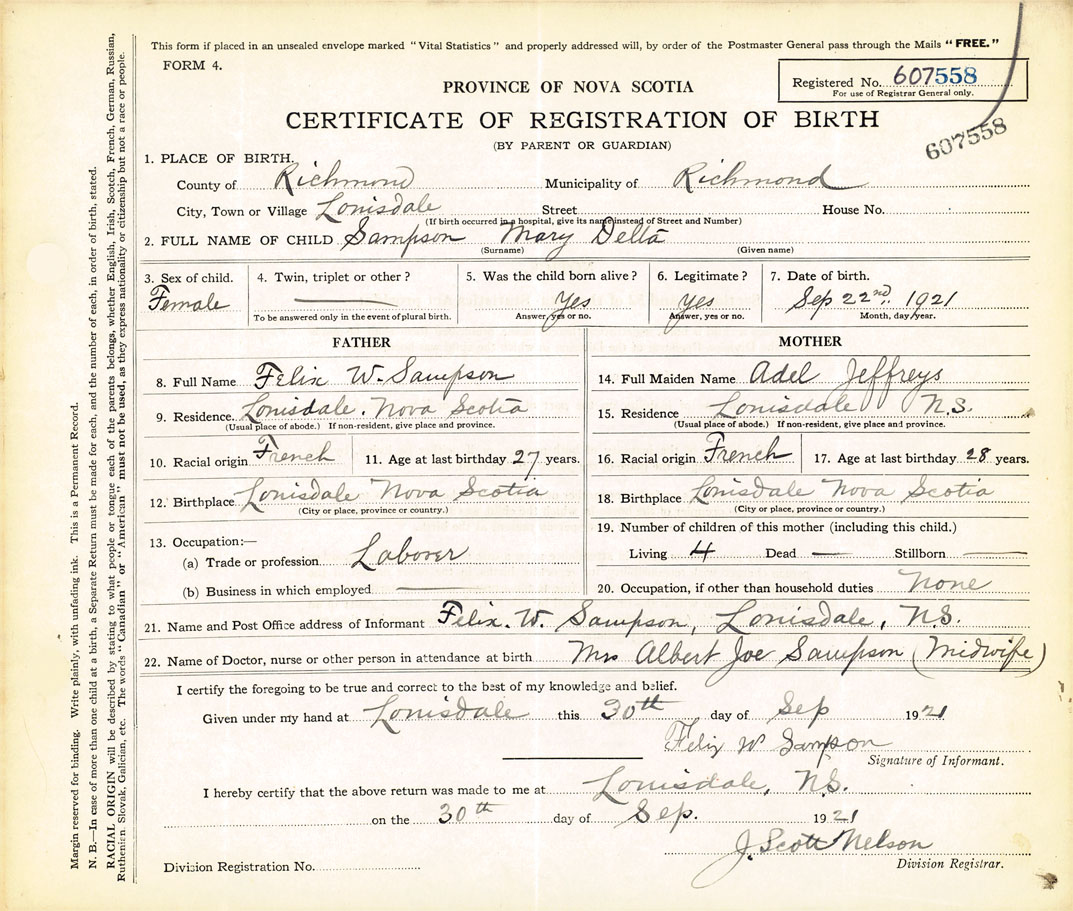 This form if placed in an unsealed envelope marked "Vital Statistics" and properly addressed will, by order of the Postmaster General pass through the Mails "FREE."
FORM 4.
Registered No. 607558
For use of Registrar General only.
PROVINCE OF NOVA SCOTIA
CERTIFICATE OF REGISTRATION OF BIRTH
(BY PARENT OR GUARDIAN)
607558
1. PLACE OF BIRTH.
County of Richmond Municipality of Richmond
City, Town or Village Louisdale Street House No.
(If birth occurred in a hospital, give its name instead of Street and Number)
2. FULL NAME OF CHILD Sampson Mary Delta
(Surname) (Given name)
3. Sex of child. 4. Twin, triplet or other? 5. Was the child born alive? 6. Legitimate? 7. Date of birth.
Female Yes Yes Sep 22nd. 1921
To be answered only in the event of plural birth. Answer, yes or no. Answer, yes or no. Month, day, year.
FATHER MOTHER
8. Full Name Felix W. Sampson 14. Full Maiden Name Adel Jeffreys
9. Residence. Louisdale. Nova Scotia 15. Residence Louisdale N.S.
(Usual place of abode.) If non-resident, give place and province. (Usual place of abode.) If non-resident, give place and province.
10. Racial origin French 11. Age at last birthday 27 years. 16. Racial origin French 17. Age at last birthday 28 years.
12. Birthplace Louisdale Nova Scotia 18. Birthplace Louisdale Nova Scotia
(City or place, province or country.) (City or place, province or country.)
13. Occupation:— 19. Number of children of this mother (including this child.)
(a) Trade or profession Laborer Living 4 Dead — Stillborn —
(b) Business in which employed — 20. Occupation, if other than household duties None
21. Name and Post Office address of Informant Felix. W. Sampson, Louisdale, N.S.
22. Name of Doctor, nurse or other person in attendance at birth Mrs Albert Joe Sampson (Midwife)
I certify the foregoing to be true and correct to the best of my knowledge and belief.
Given under my hand at Louisdale this 30th day of Sep 1921
Felix W Sampson
Signature of Informant.
I hereby certify that the above return was made to me at Louisdale, N.S.
on the 30th day of Sep. 1921
J. Scott Nelson
Division Registration No. Division Registrar.
Margin reserved for binding. Write plainly, with unfading ink. This is a Permanent Record.
N. B.—In case of more than one child at a birth, a Separate Return must be made for each, and the number of each, in order of birth, stated.
RACIAL ORIGIN will be described by stating to what people or tongue each of the parents belongs, whether English, Irish, Scotch, French, German, Russian,
Ruthenian, Slovak, Galician, etc. The words "Canadian" or "American" must not be used, as they express nationality or citizenship but not a race or people.